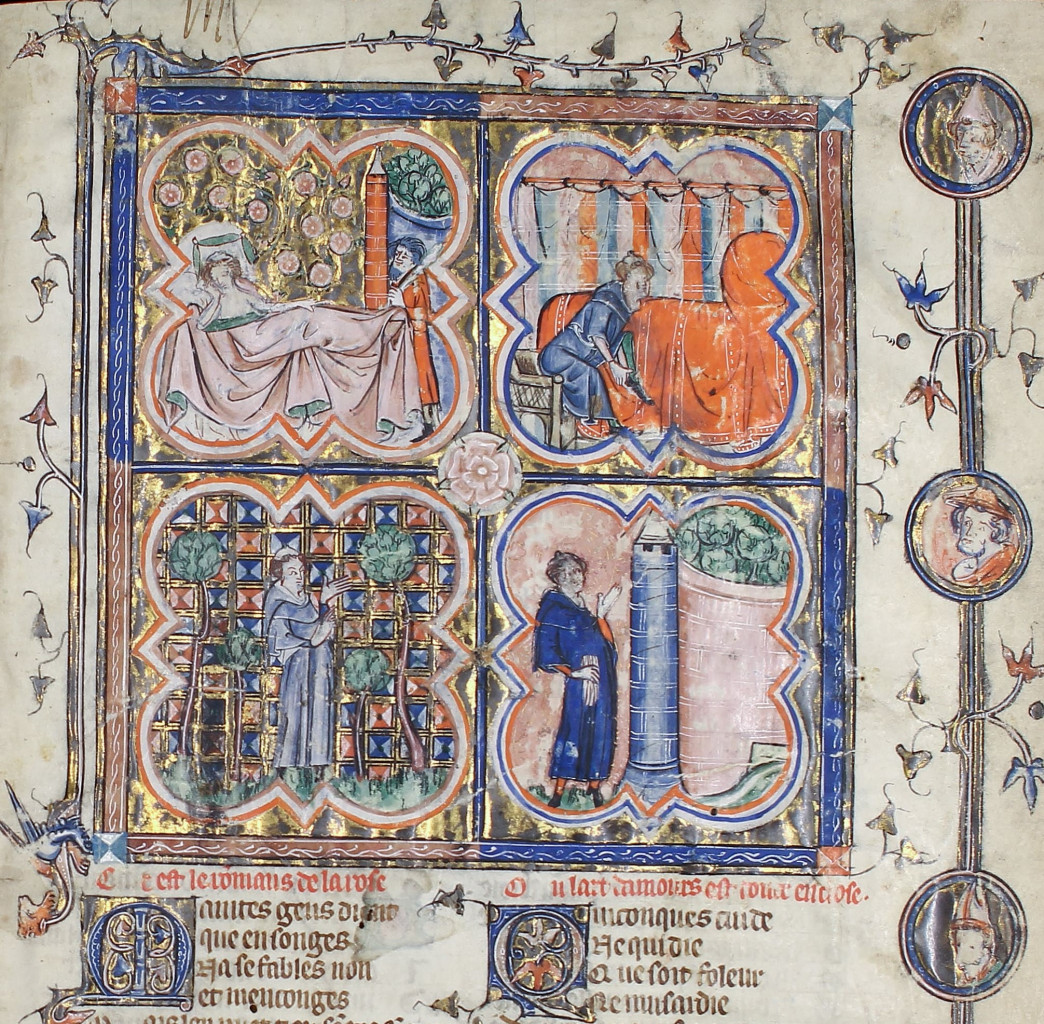 C est le romans de la rose
Maintes gens dient
que en songes
Na se fables non
et menconges
Ou lart damours est toute enclose.
Quiconques cuide
Ne qui die
Que soit foleur
Ne musardie